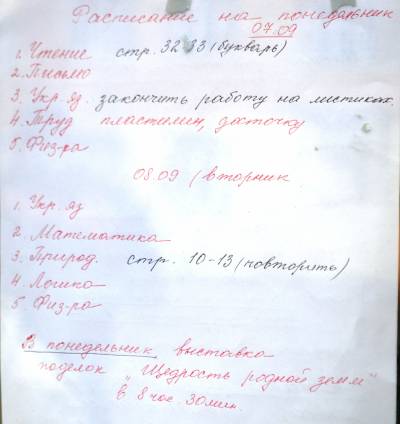 Расписание на понедельник
07.09
1. Чтение стр. 32-33 (букварь)
2. Письмо
3. Укр. яз. закончить работу на листиках.
4. Труд пластилин, досточку
5. Физ-ра
08.09 / вторник
1. Укр. яз
2. Математика
3. Природ. стр. 10-13 (повторить)
4. Логика
5. Физ-ра
В понедельник выставка
поделок "Щедрость родной земли"
в 8 час. 30 мин.